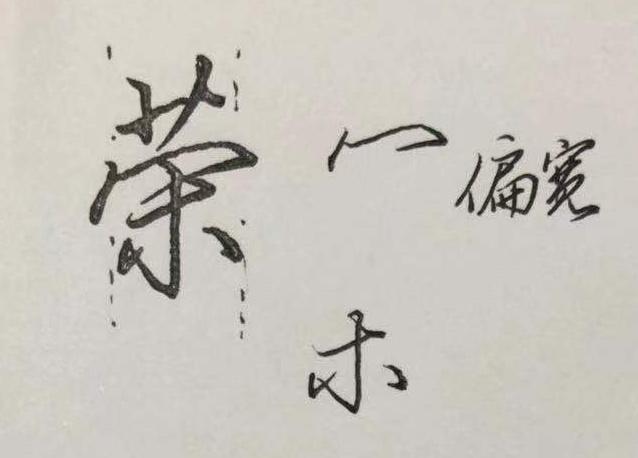 荣 冖 偏宽
木